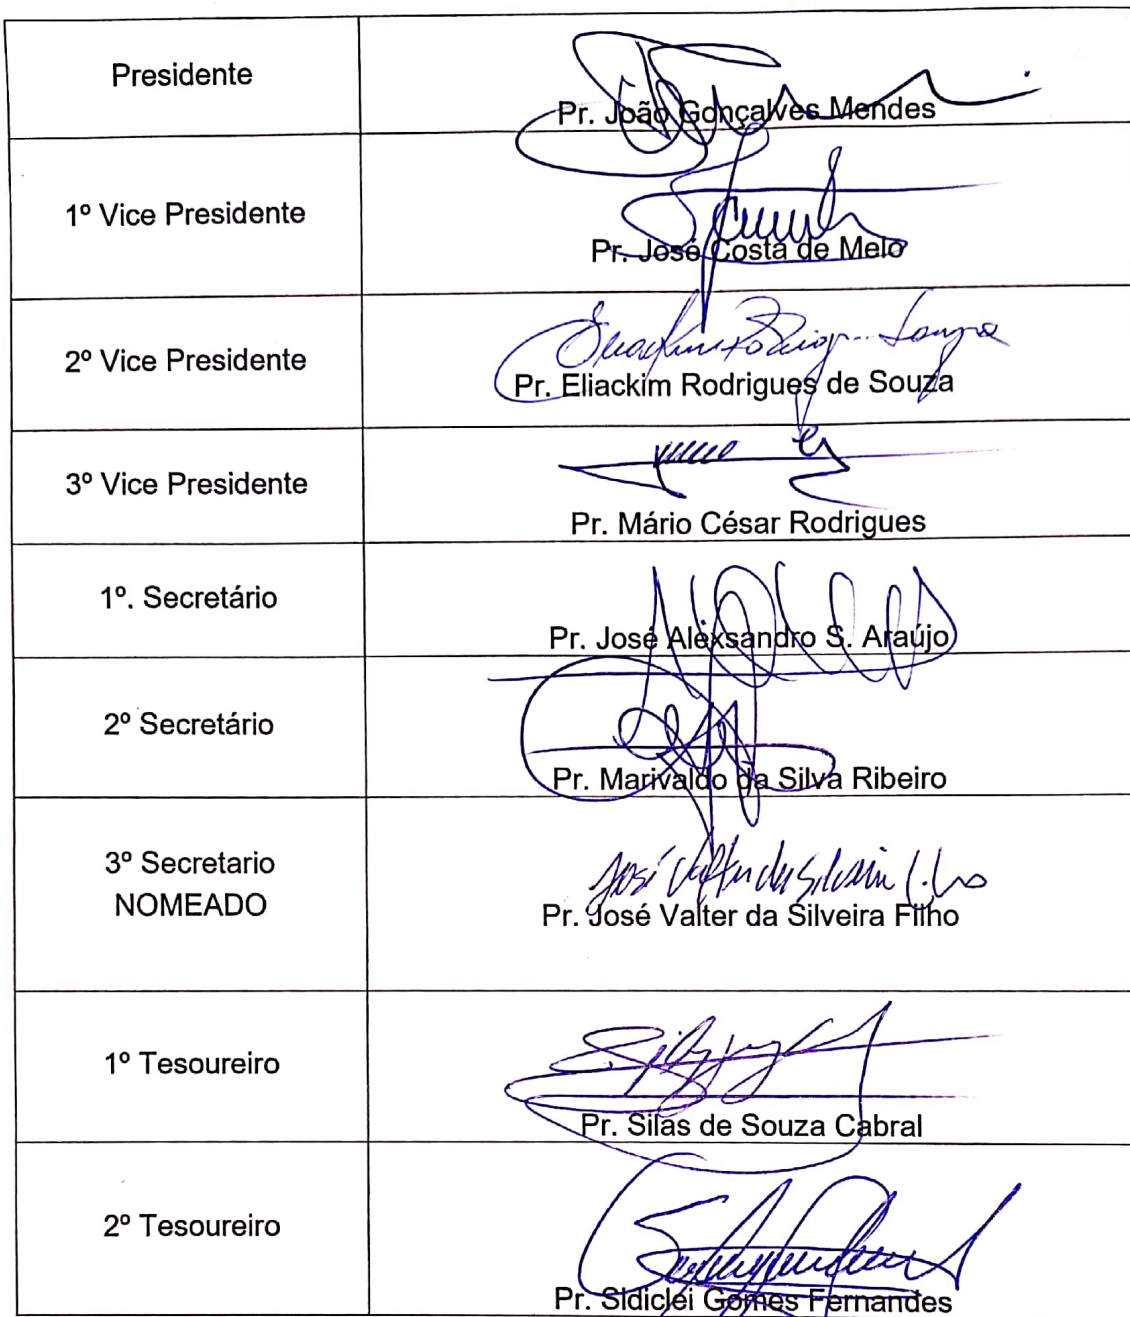 Presidente
Pr. João Gonçalves Mendes
1º Vice Presidente
Pr. José Costa de Melo
2º Vice Presidente
Pr. Eliackim Rodrigues de Souza
3º Vice Presidente
Pr. Mário César Rodrigues
1º. Secretário
Pr. José Alexsandro S. Araújo
2º Secretário
Pr. Marivaldo da Silva Ribeiro
3º Secretario
NOMEADO
José Valter da Silveira Filho
Pr. José Valter da Silveira Filho
1º Tesoureiro
Pr. Silas de Souza Cabral
2º Tesoureiro
Pr. Sidiclei Gomes Fernandes